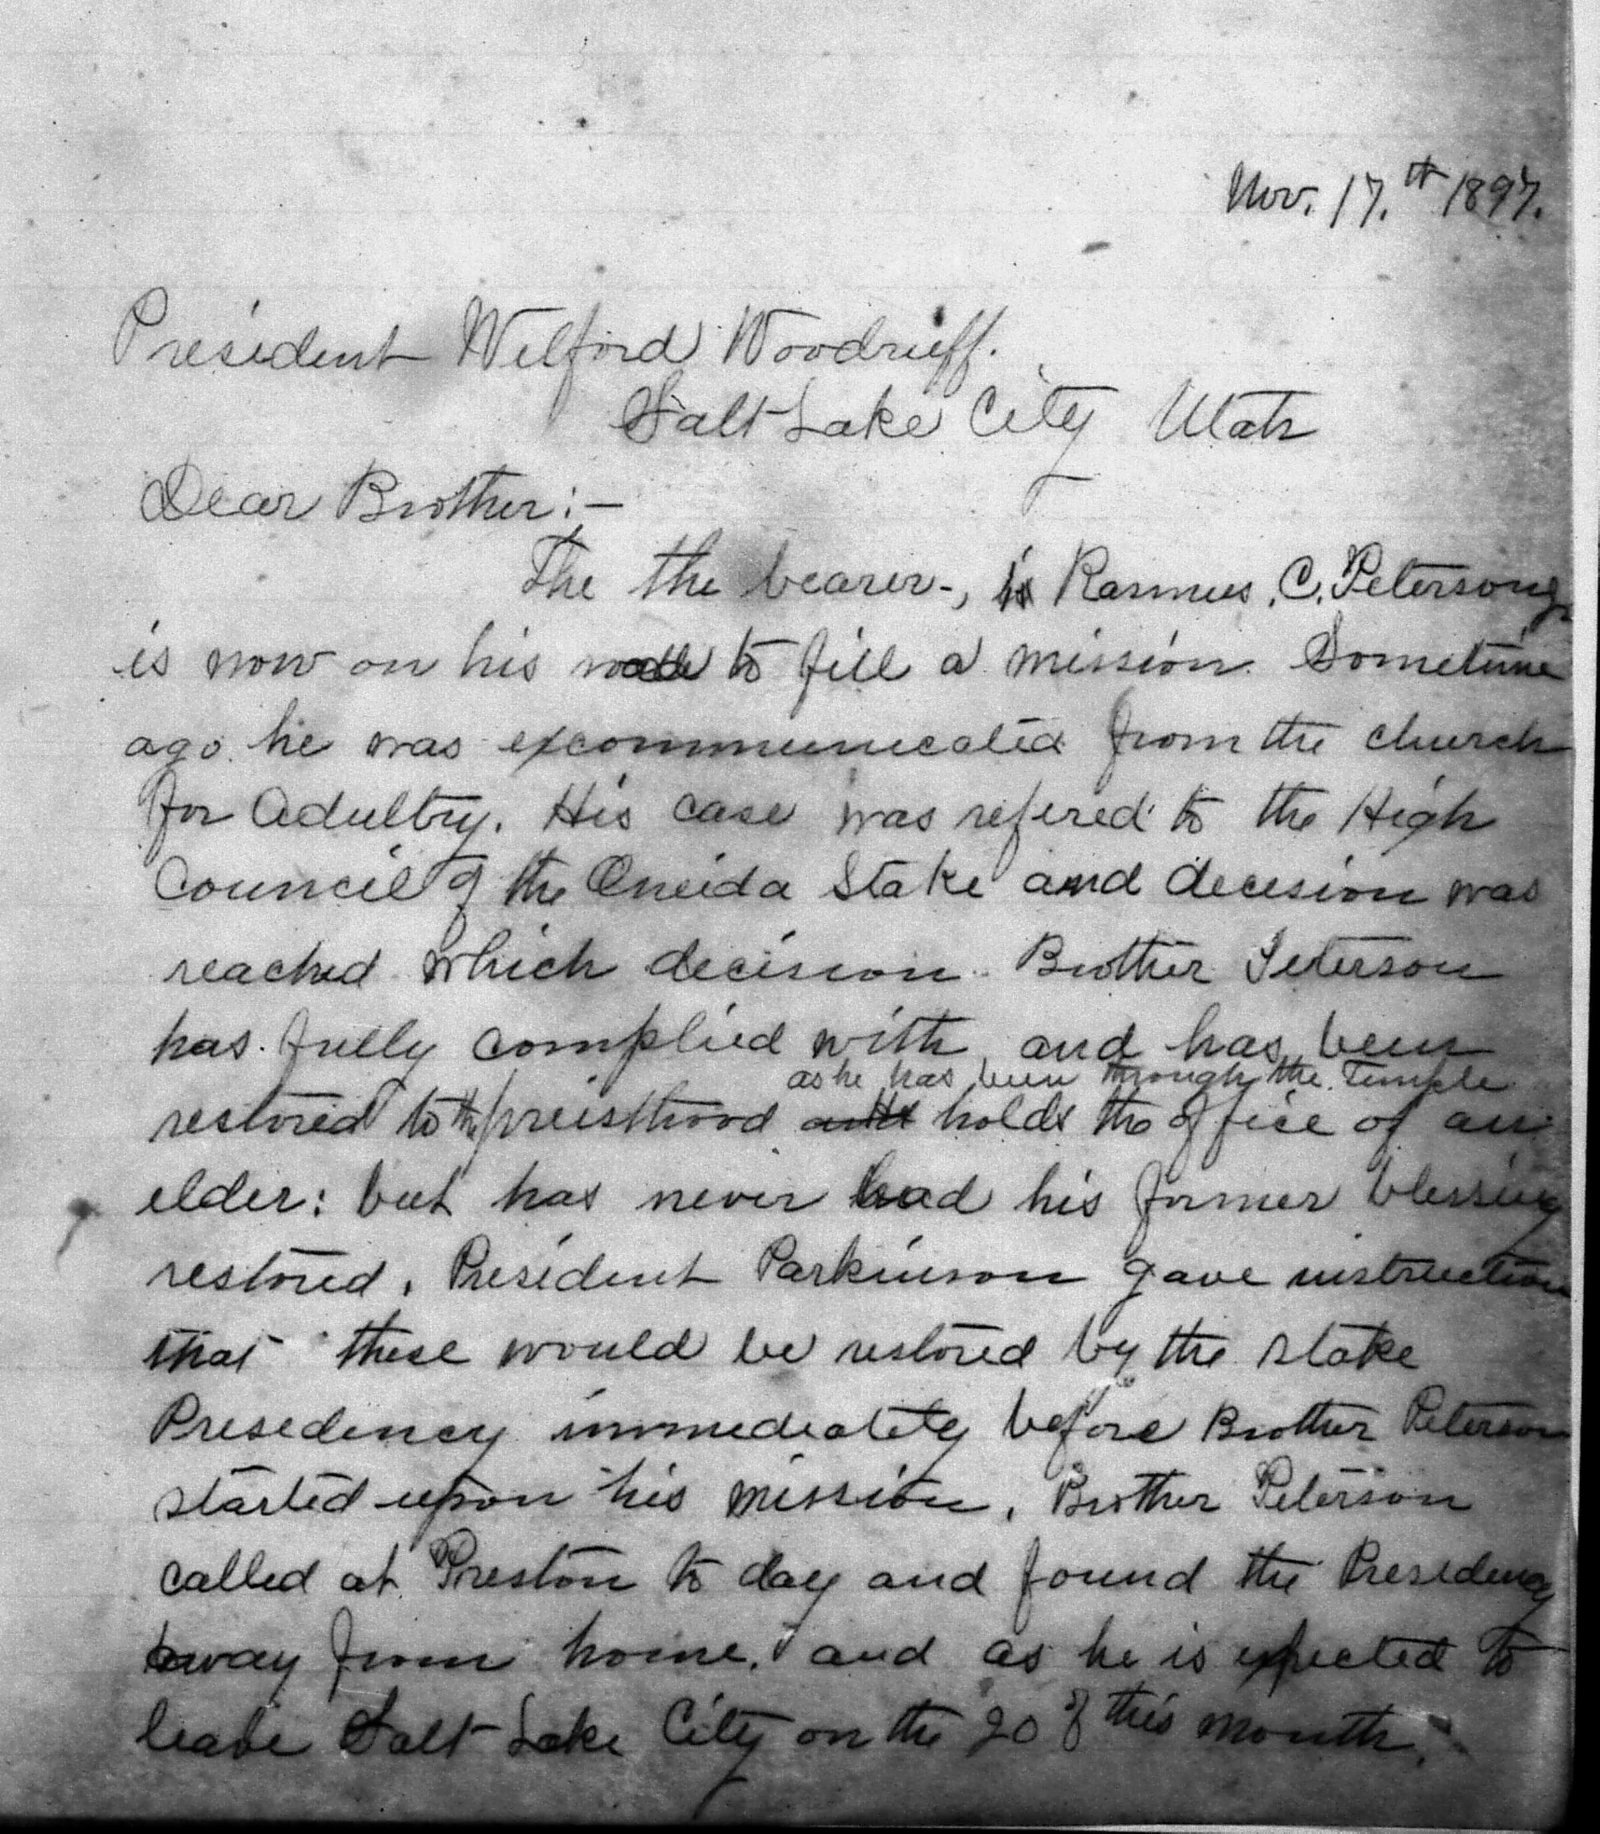 Nov. 17.th 1897.
President Wilford Woodruff.
Salt Lake City Utah
Dear Brother:-
The the bearer-, is Rasmus. C. Peterson,
is now on his to fill a mission. Sometime
ago he was excommunicated from the church
for Adultry. His case was refered to the High
Council of the Oneida Stake and decision was
reached which decision Brother Peterson
has fully complied with, and has been
as he has been through the Temple
restored to the preisthood holds the office of an
elder: but has never had his former blessing
restored. President Parkinson gave instruction
that these would be restored by the stake
Presedency immediately before Brother Peterson
started upon his mission. Brother Peterson
called at Preston to day and found the Presedency
away from home. and as he is expected to
leave Salt Lake City on the 20 of this month.